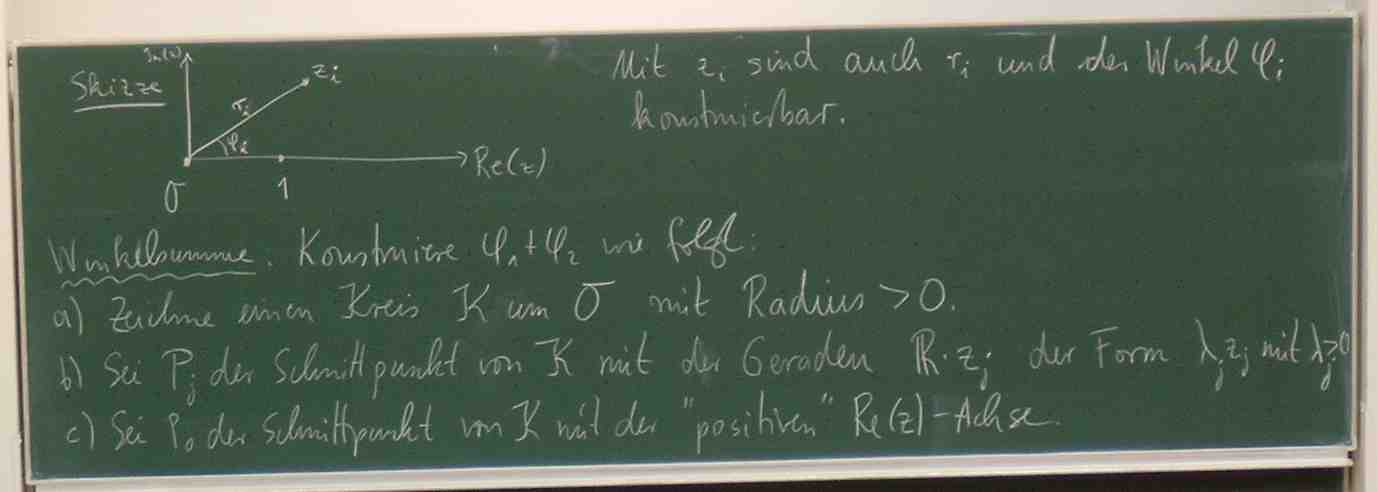 Skizze
Im(z)
z_i
r_i
φ_i
Re(z)
0
1
Mit z_i sind auch r_i und der Winkel φ_i
konstruierbar.
Winkelsumme. Konstruiere φ_1+φ_2 wie folgt:
a) Zeichne einen Kreis K um 0 mit Radius > 0.
b) Sei P_j der Schnittpunkt von K mit der Geraden ℝ·z_j der Form λ_j z_j mit λ_j>0
c) Sei P_0 der Schnittpunkt von K mit der "positiven" Re(z)-Achse.